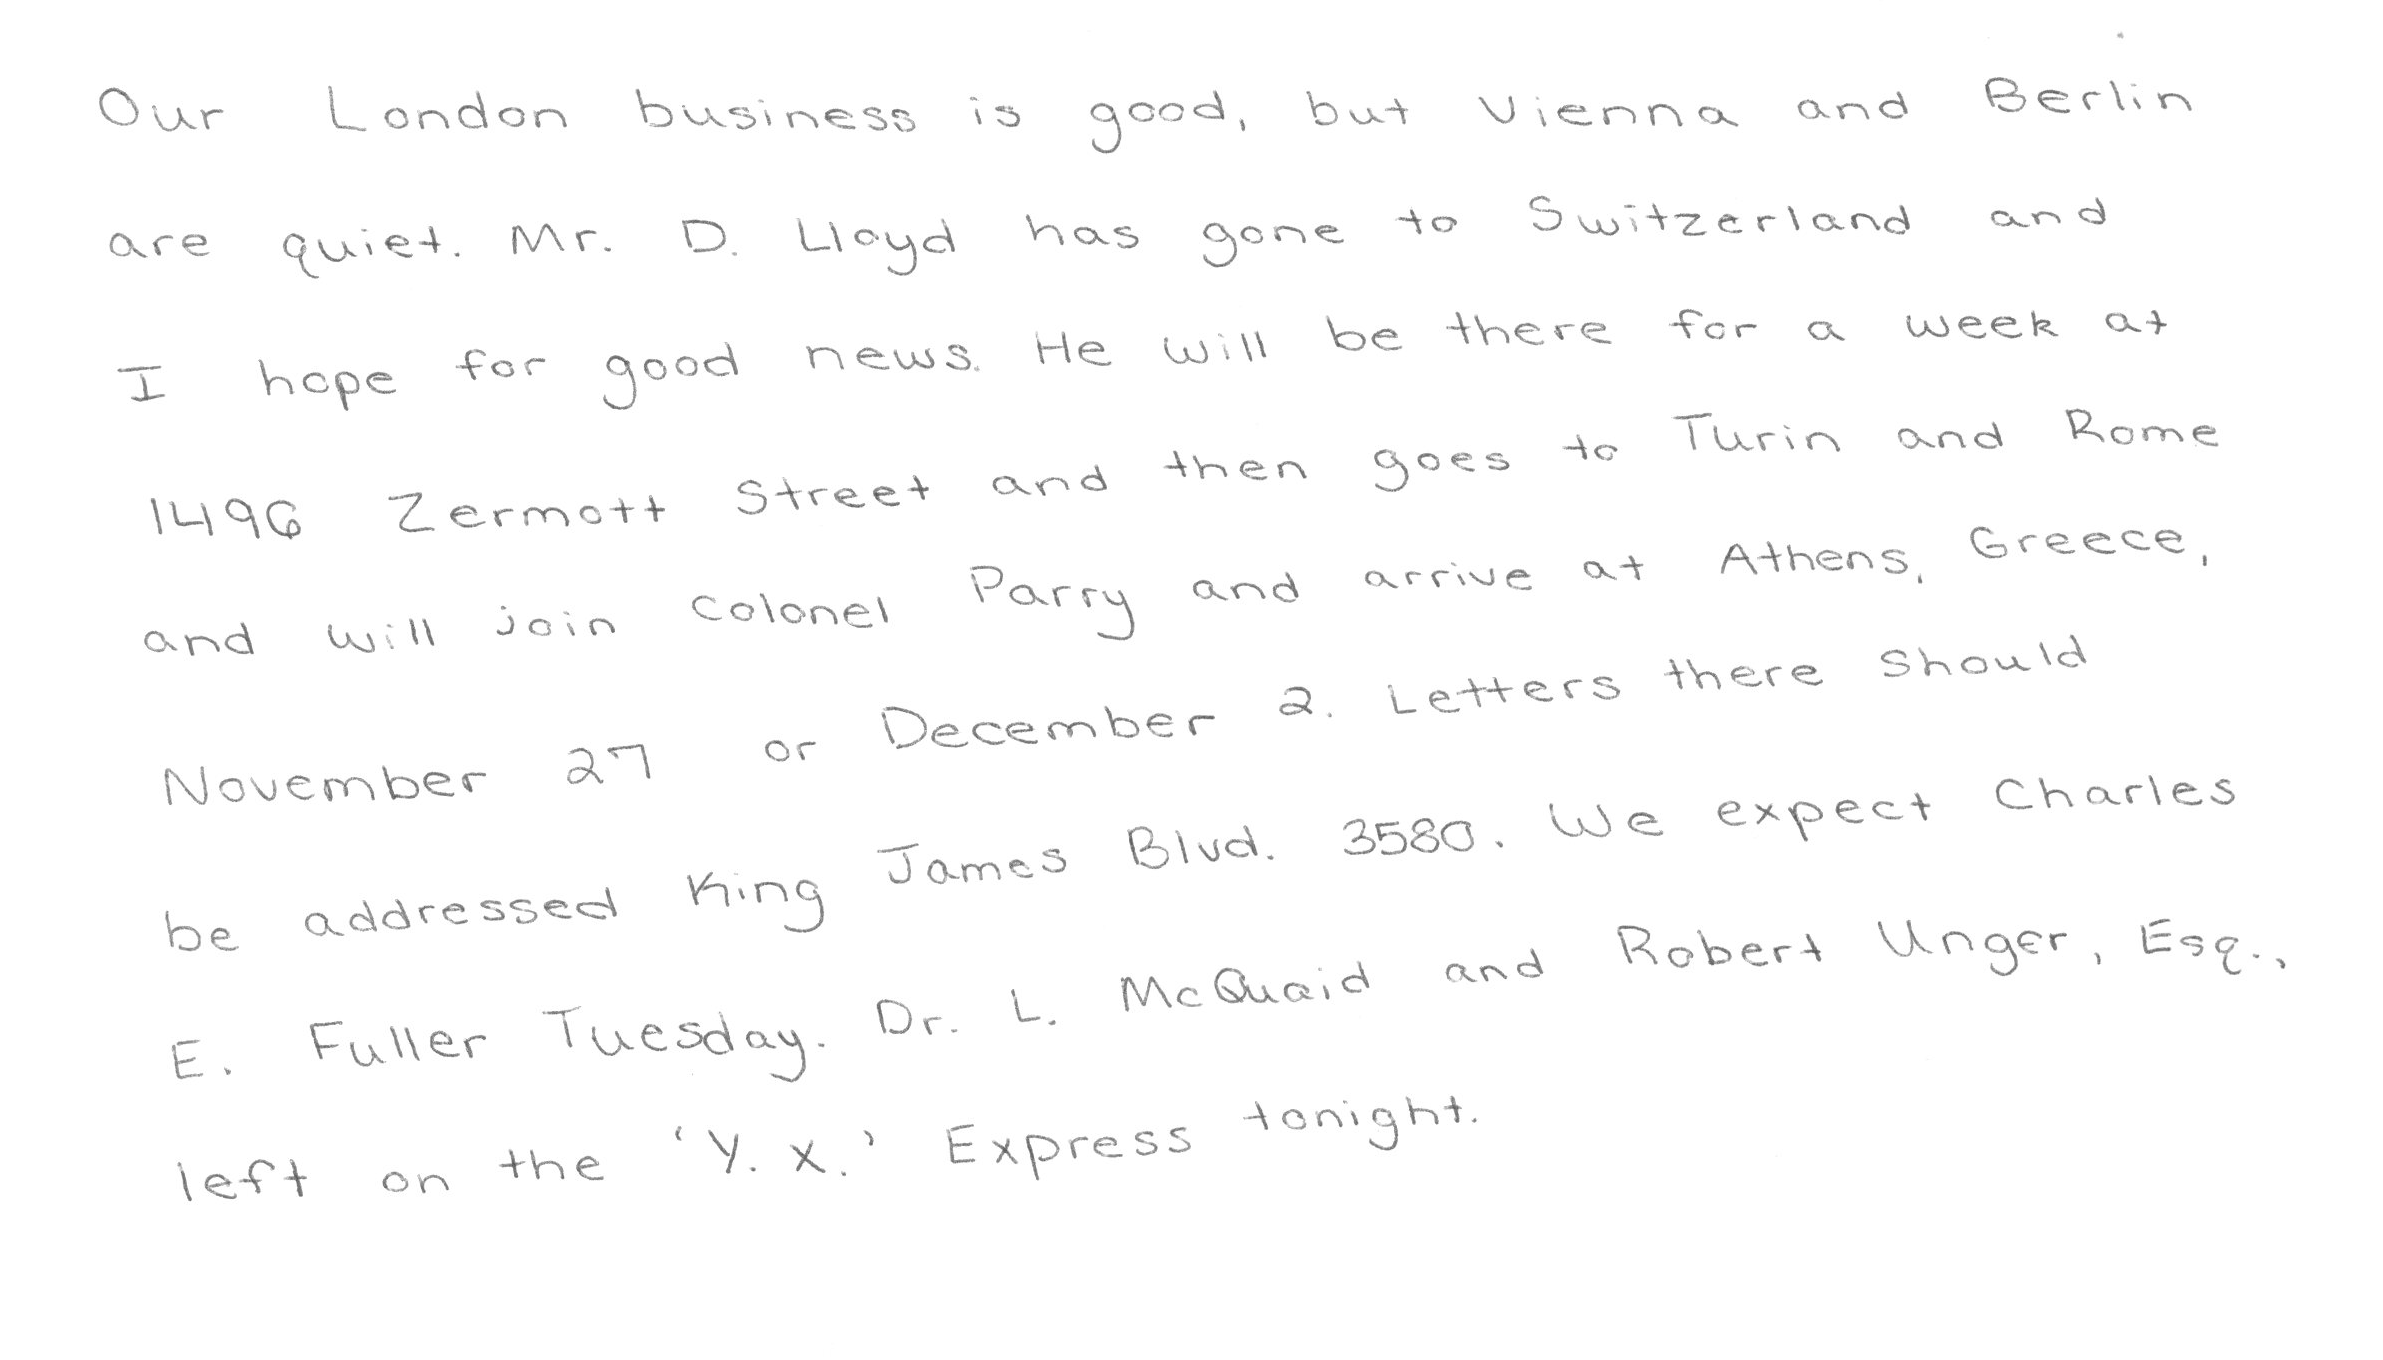 Our London business is good, but Vienna and Berlin
are quiet. Mr. D. Lloyd has gone to Switzerland and
I hope for good news. He will be there for a week at
1496 Zermott Street and then goes to Turin and Rome
and will join Colonel Parry and arrive at Athens, Greece,
November 27 or December 2. Letters there should
be addressed King James Blvd. 3580. We expect Charles
E. Fuller Tuesday. Dr. L. McQuaid and Robert Unger, Esq.,
left on the 'Y. X.' Express tonight.